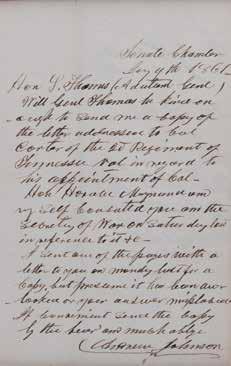 Senate Chamber
July 9th 1861
Hon L. Thomas (Adutant Genl)
Will Genl Thomas be kind en
ough to send me a copy of
the letter addressed to Col
Carter of the 2d Regiment of
Tennessee Vol in regard to
his appointment of Col-
Hon Horace Maynard and
my self Consulted you and the
Secretry of War on Saturday last
in reference to it &c-
I sent one of the pages with a
letter to you on monday last for a
Copy, but presume it has been over
looked or your answer misplaced
If convenient send the Copy
by the bearer and much oblige
Andrew Johnson